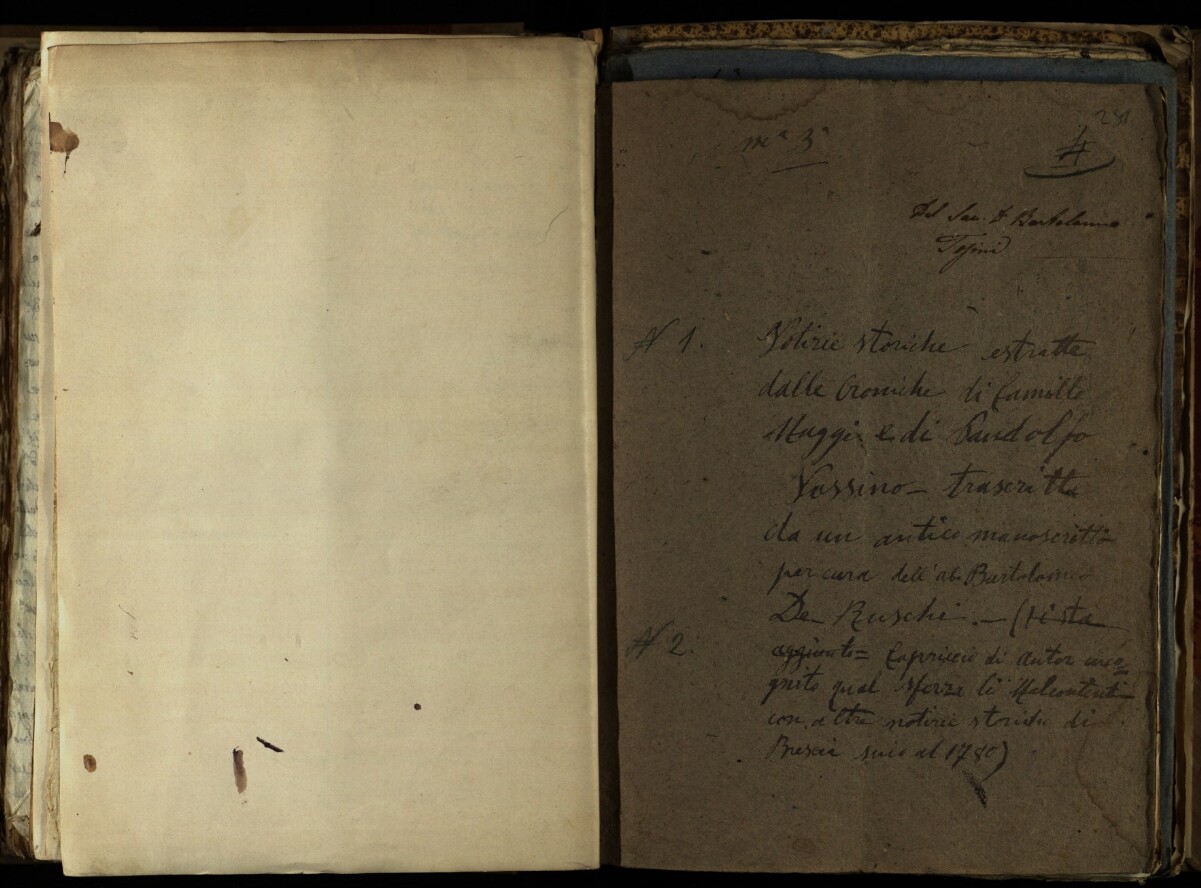 281
mᵃ 3ᵃ
4
Del Sac. D. Bartolomeo
N 1. Notizie storiche estratte
dalle Croniche di Camillo
Maggi e di Pandolfo
Nassino – trascritte
da un antico manoscritto
per cura dell'ab. Bartolomeo
De Ruschi. – (vi sta
N 2. aggiunto = Capriccio di Autor inco=
gnito qual sferza li Malcontenti
con altre notizie storiche di
Brescia sino al 1780)